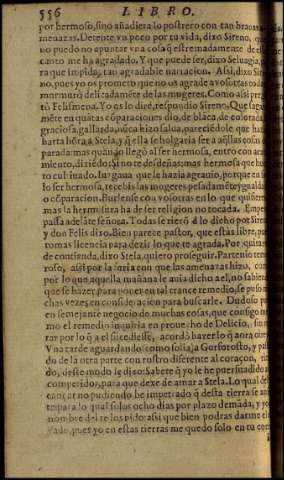 556 LIBRO.
por hermoso, sino añadiera lo postrero con tan brauas
menazas. Detente vn poco por tu vida, dixo Sireno, que
no puedo no apuntar vna cosa q̃ estremadamente de
canto me ha agradado. Y que puede ser, dixo Seluagia,
ra que impida, tan agradable narracion. Assi, dixo Sire
no, pues yo os prometo que no os agrade a vosotras todas
mormurò delicadamẽte de las mugeres. Como assi
tò Felismena. Yo os lo dirè, respondio Sireno. Que
mẽte en quãtas cõparaciones dio, de blãca, de colorada,
graciosa, gallarda, nũca hizo salua, pareciẽdole que
harta hõra a Stela, y q̃ ella se holgaria ser a aq̃llas cosas
parada: mas quãdo llegò al ser hermosa, entro con
miento, diziẽdo: Si no te desdeñas; mas hermosa que
to cultiuado. Iuzgaua que le hazia agrauio, porque en
lo ser hermosa, recebis las mugeres pesadamẽte ygualdad
o cõparacion. Burlense con vosotras en lo que quisieren
mas la hermosura ha de ser religion no tocada.
passa adelãte señora. Todas se rierõ d̃ lo dicho por Sireno
y don Felis dixo. Bien parece pastor, que estàs libre,
tomas licencia para dezir lo que te agrada. Por quitaros
de contienda, dixo Stela, quiero proseguir. Partenio
roso, assi por la furia con que las amenazas hizo, como
por lo que aquella mañana le auia dicho el, no sabiendo
que se hazer para poner en tal trance remedio, se puso
chas vezes en consideracion para buscarle. Dudoso
en semejante negocio de muchas cosas, que consigo
mo el remedio inquiria en prouecho de Delicio,
rar por lo q̃ a el sucediesse, acordò hazer lo q̃ aora
Vna tarde aguardando (como solia) a Gorforosto, y
do de la otra parte con rostro diferente al coraçon,
do, deste modo le dixo: Sabete q̃ yo le he persuadido a
competidor, para que dexe de amar a Stela. Lo qual
cançar no pudiendo he impetrado q̃ desta tierra se
to para lo qual solos ocho dias por plazo demãda, y
nombre del te los pido: assi que bien podras darme
gado, pues yo en estas tierras me quedo solo en tu